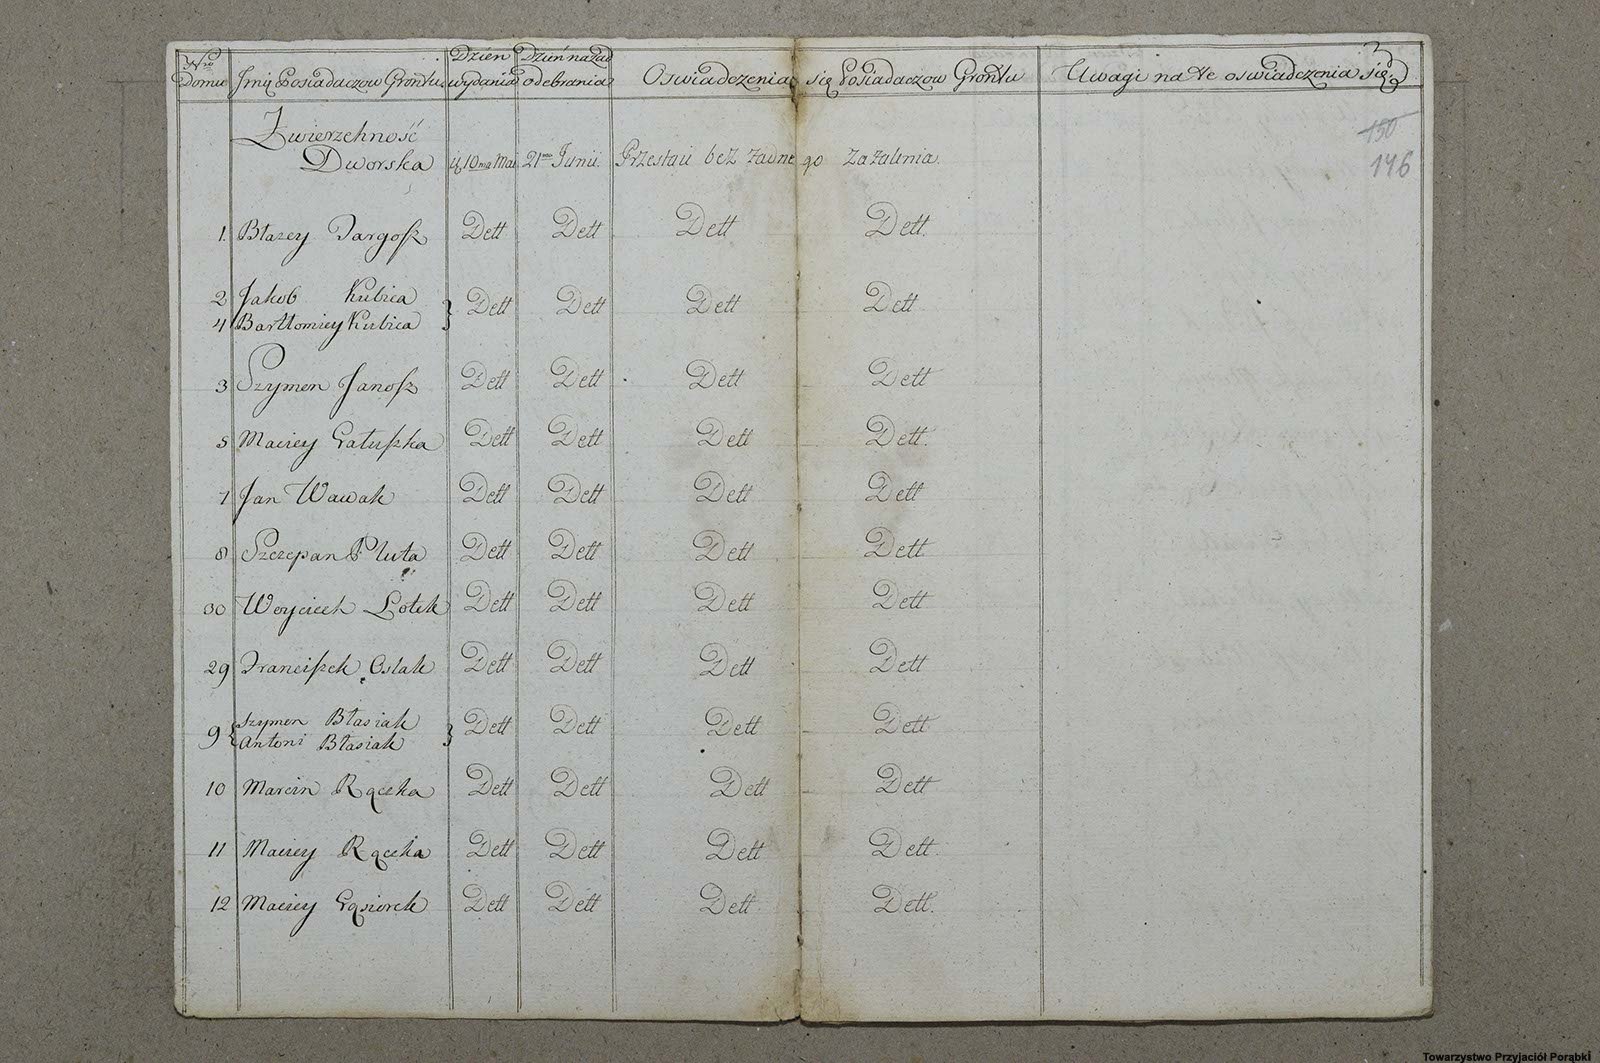 Nro Domu | Jmię Posiadaczow Grontu | Dzień wydania | Dzień nazad odebrania | Oswiadczenia się Posiadaczow Grontu | Uwagi na te oswiadczenia się
3
150
146
Zwierzchność
Dworska 10ma Mai 21mo Junii Przestaii bez żadnego zażalenia.
1. Błażey Jargosz Dett Dett Dett Dett.
2 Jakob Kubica
4 Bartłomiey Kubica } Dett Dett Dett Dett
3 Szymon Janosz Dett Dett Dett Dett
5 Maciey Gałuszka Dett Dett Dett Dett.
7 Jan Wawak Dett Dett Dett Dett
8 Szczepan Pluta Dett Dett Dett Dett
30 Woyciech Lotek Dett Dett Dett Dett
29 Franciszek Oslak Dett Dett Dett Dett
9 { Szymon Błasiak
Antoni Błasiak } Dett Dett Dett Dett
10 Marcin Rączka Dett Dett Dett Dett
11 Maciey Rączka Dett Dett Dett Dett.
12 Maciey Gąsiorek Dett Dett Dett Dett.
Towarzystwo Przyjaciół Porąbki